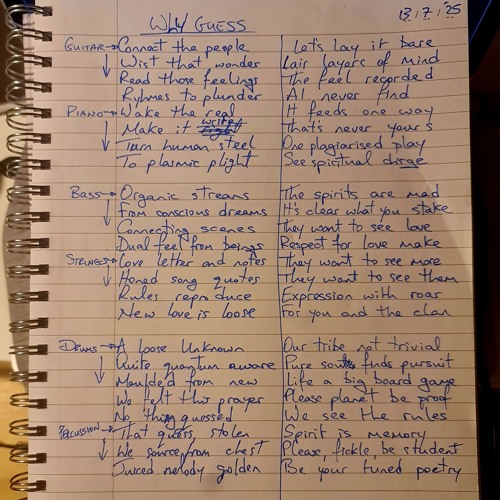 WHY GUESS
13/7/'25
GUITAR → Connect the people
Wist that wonder
Read those feelings
Ryhmes to plunder
PIANO → Wake the real
Make it write
Turn human steel
To plasmic plight
BASS → Organic streams
From conscious dreams
Connecting scenes
Dual feel from beings
STRINGS → Love letter and notes
Honed song quotes
Rules reproduce
New love is loose
DRUMS → A loose unknown
Quite quantum aware
Moulded from new
We felt this prayer
No thing guessed
PERCUSSION → That guess, stolen
We source from chest
Juiced melody golden
Let's lay it bare
Lair layers of mind
The feel recorded
AI never find
It feeds one way
That's never yours
One plagiarised play
See spiritual dirge
The spirits are mad
It's clear what you stake
They want to see love
Respect for love make
They want to see more
They want to see them
Expression with roar
For you and the clan
Our tribe not trivial
Pure souls finds pursuit
Life a big board game
Please planet be proof
We see the rules
Spirit is memory
Please, fickle, be student
Be your tuned poetry